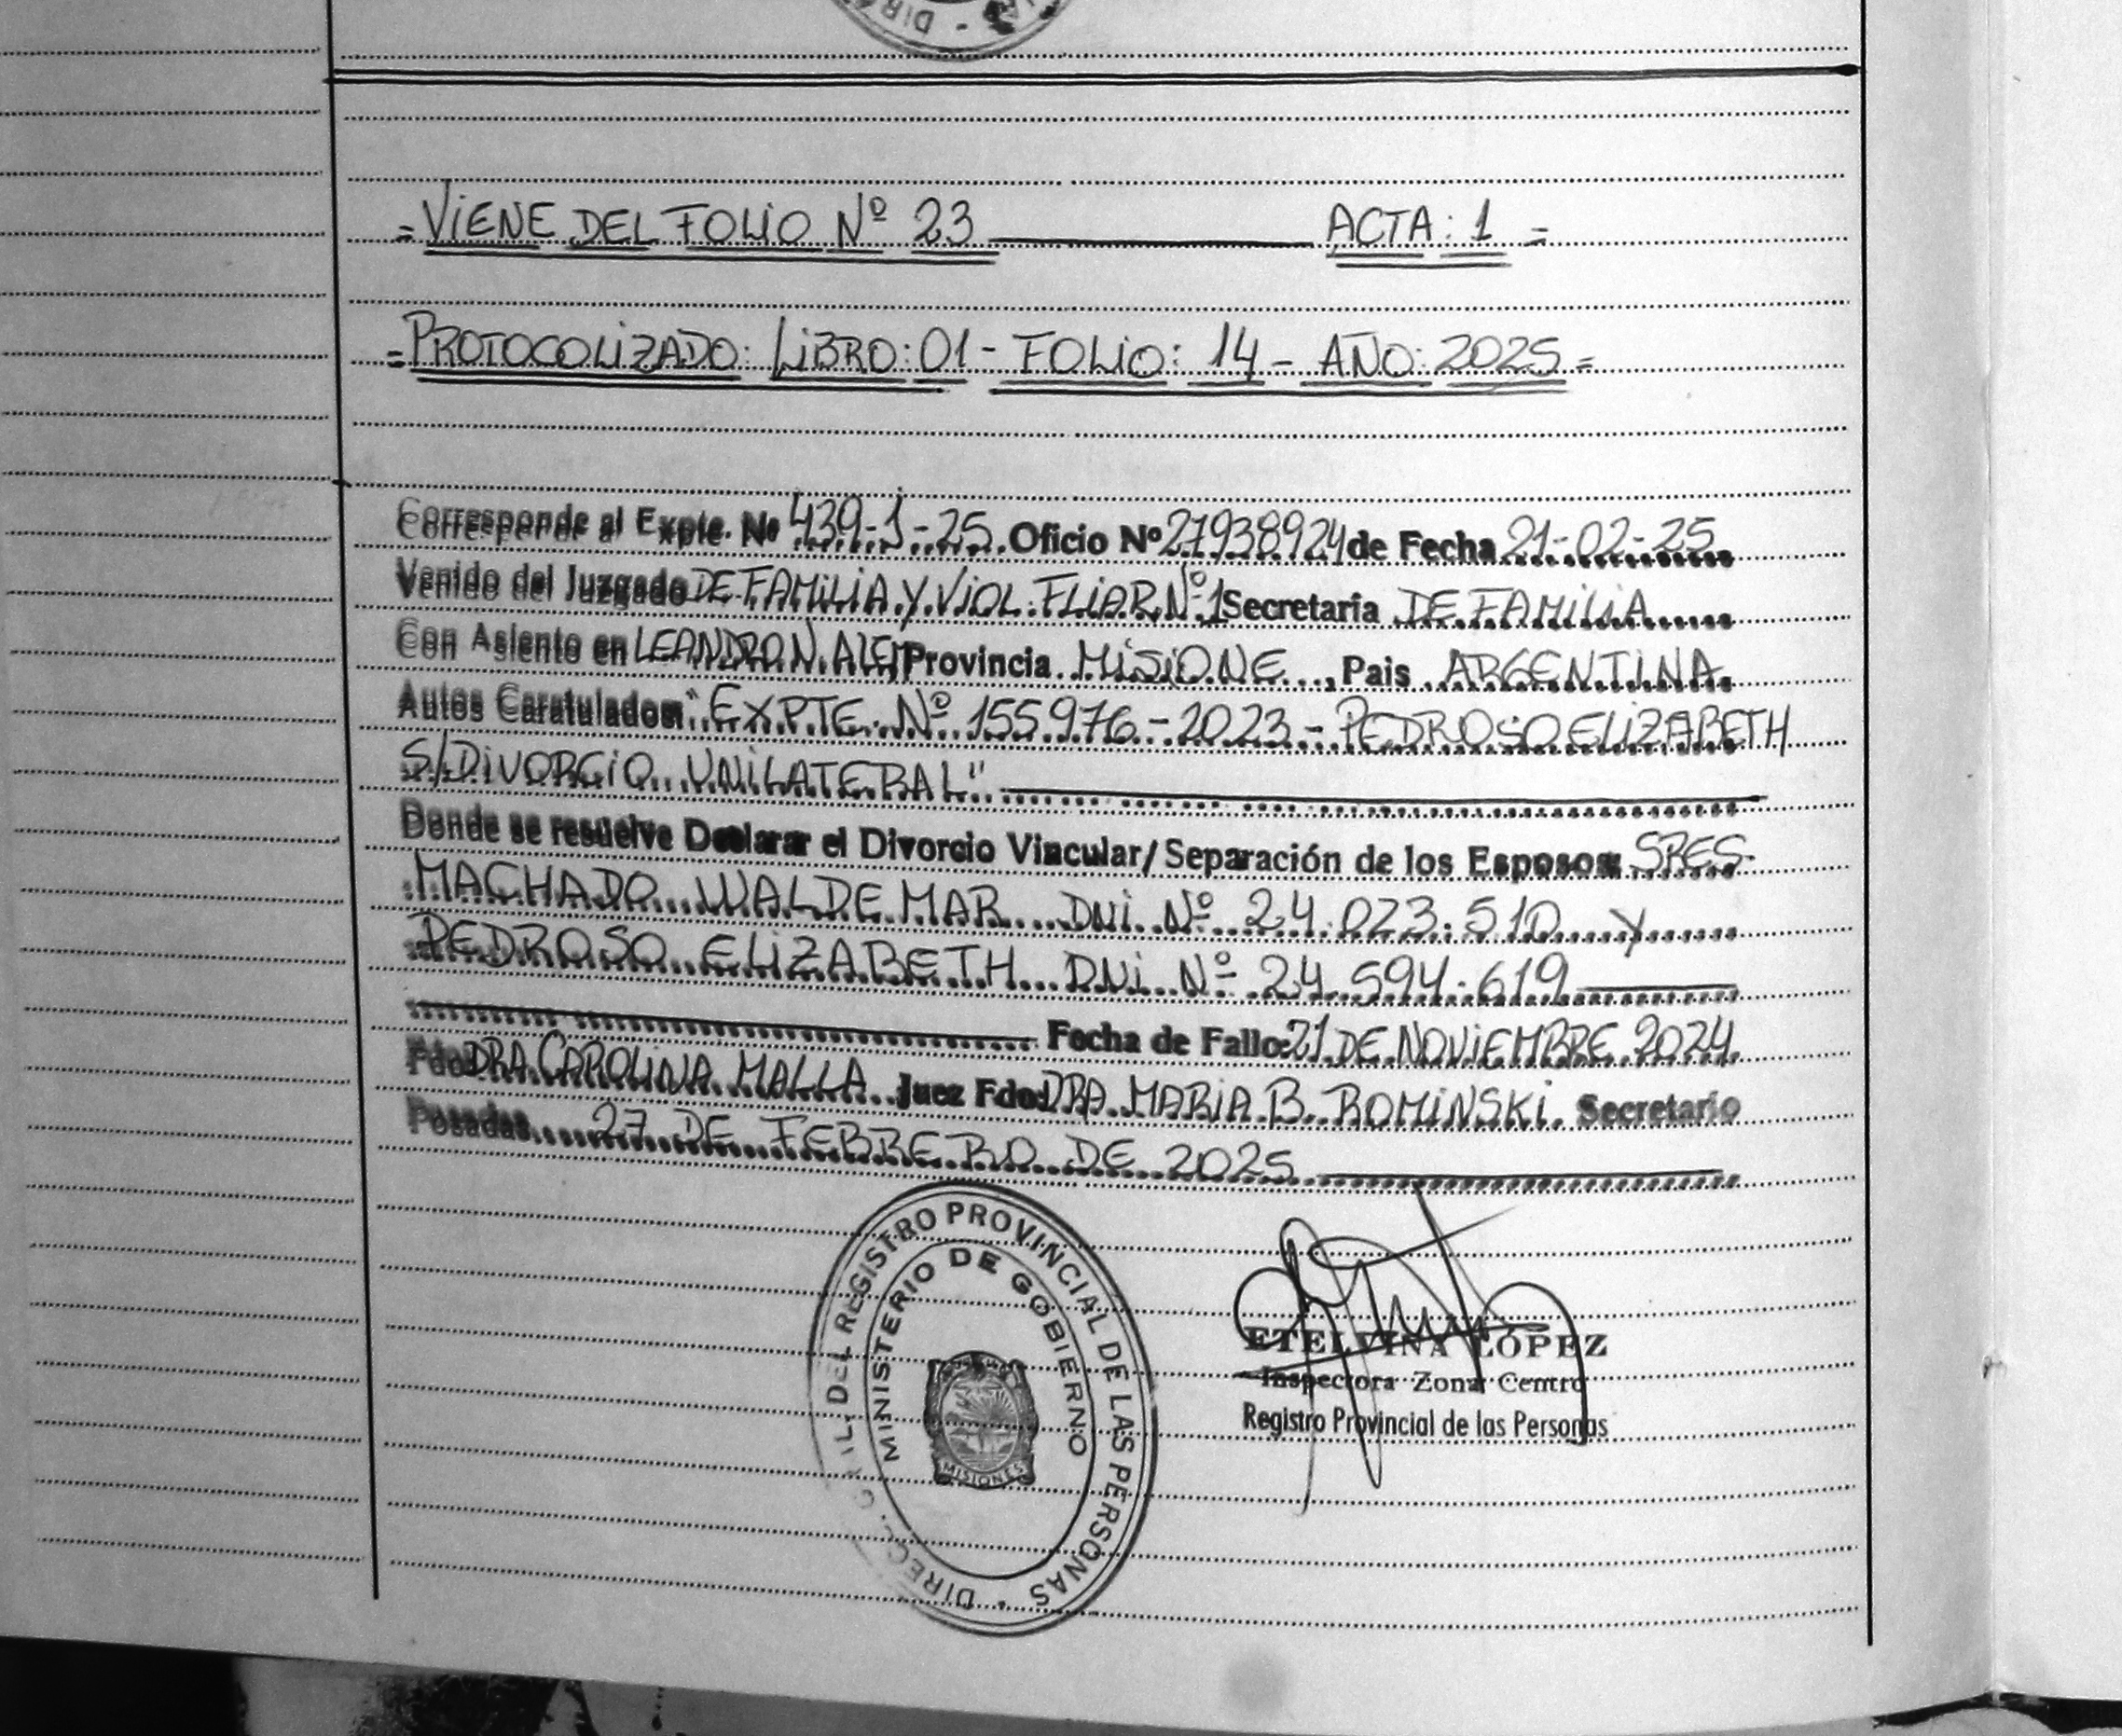 DIR
=VIENE DEL FOLIO Nº 23 ACTA: 1 =
=PROTOCOLIZADO: LIBRO: 01 - FOLIO: 14 - AÑO: 2025 =
Corresponde al Expte. Nº 439-1-25 Oficio Nº 27938924 de Fecha 21-02-25
Venido del Juzgado DE FAMILIA Y VIOL. FLIAR Nº 1 Secretaria DE FAMILIA
Con Asiento en LEANDRO N. ALEM Provincia MISIONE, Pais ARGENTINA
Autos Caratulados: "EXPTE. Nº 155976-2023 - PEDROSO ELIZABETH
S/DIVORCIO UNILATERAL"
Donde se resuelve Declarar el Divorcio Vincular/Separación de los Esposos: SRES.
MACHADO WALDEMAR DNI Nº 24.073.510 Y
PEDROSO ELIZABETH DNI Nº 24.594.619
Fecha de Fallo: 21 DE NOVIEMBRE 2024
Fdo: DRA. CAROLINA MALLA Juez Fdo: DRA. MARIA B. ROMINSKI. Secretario
Posadas, 27 DE FEBRERO DE 2025
DIREC. CIVIL DEL REGISTRO PROVINCIAL DE LAS PERSONAS
MINISTERIO DE GOBIERNO
MISIONES
ETELVINA LÓPEZ
Inspectora Zona Centro
Registro Provincial de las Personas